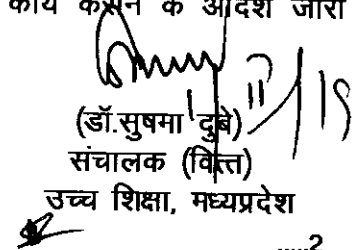 कार्य करने के आदेश जारी
(डॉ.सुषमा दुबे)
संचालक (वित्त)
उच्च शिक्षा, मध्यप्रदेश
.....2